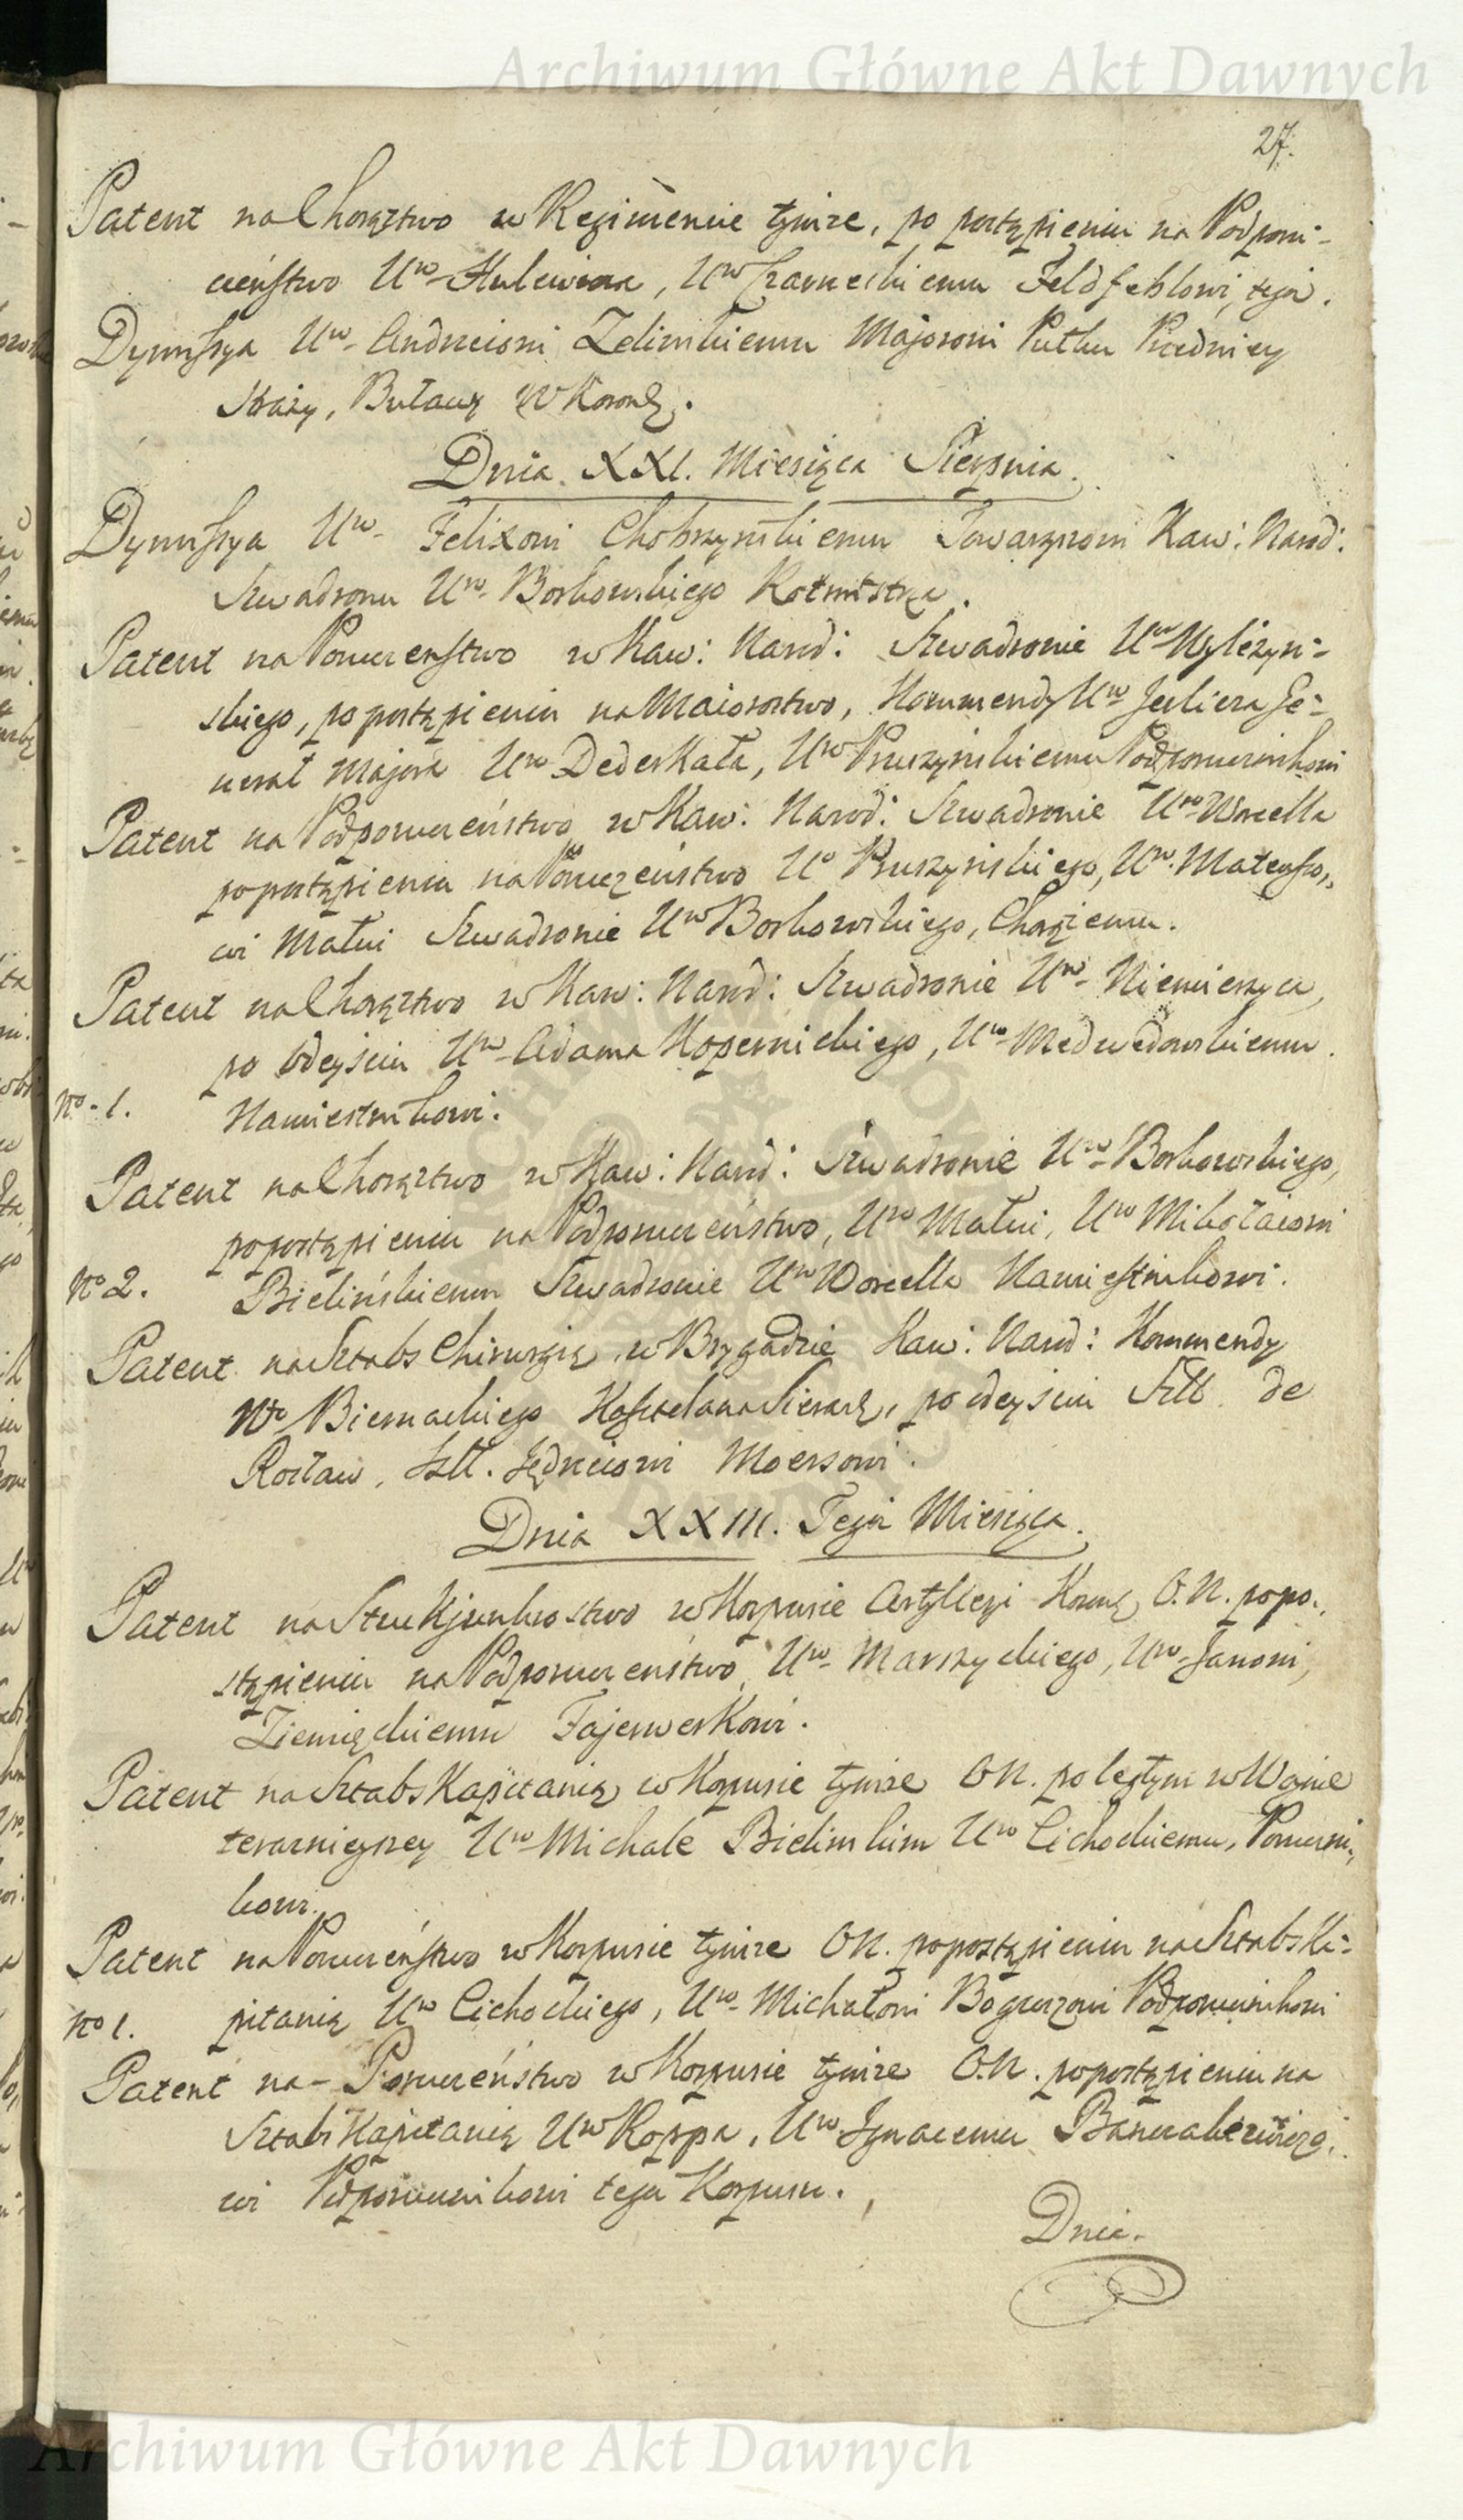 Archiwum Główne Akt Dawnych
27.
Patent na Chorąztwo w Regimencie tymże, po postąpieniu na Podporu-
czeństwo Uro Hulewicza, Uro Czarneckiemu Feldfeblowi, tegoż.
Dymissya Uro Andrzeiowi Zelinskiemu Majorowi Pułku Przedniey
Straży, Buławy W Koronę.
Dnia XXI. Miesiąca Sierpnia.
Dymissya Uro Felixowi Chobrzynskiemu Towarzyszowi Kaw: Narod:
Szwadronu Uro Borkowskiego Rotmistrza.
Patent na Poruczenstwo w Kaw: Narod: Szwadronie Uro Wyleżyń-
skiego, po postąpieniu na Maiorostwo, Kommendy Uro Jerlicza Ge-
nerał Majora Uro Dederkała, Uro Pruszyńskiemu Podporucznikowi
Patent na Podporuczeństwo w Kaw: Narod: Szwadronie Uro Worcella
po postąpieniu na Poruczeństwo Uo Pruszyńskiego, Uro Mateuszo„
wi Małui Szwadronie Uro Borkowskiego, Chorążemu.
Patent na Chorąztwo w Kaw: Narod: Szwadronie Uro Niemierzyca,
po odeyściu Uro Adama Kopernickiego, Uro Medwedowskiemu
No 1. Namiestnikowi.
Patent na Chorąztwo w Kaw: Narod: Szwadronie Uro Borkowskiego,
po postąpieniu na Podporuczeństwo, Uro Małui, Uro Mikołaiowi
No 2. Bielińskiemu Szwadronie Uro Worcella Namiestnikowi.
Patent na Sztabs Chirurgią w Brygadzie Kaw: Narod: Kommendy
Wo Biernackiego Kasztelana Sieradz, po odeyściu Szlt de
Rosław, Szlt. Jędrzeiowi Moersowi.
Dnia XXIII. Tegoż Miesiąca.
Patent na Stuckjunkrostwo w Korpusie Artylleryi Koronę O.N. po po„
stąpieniu na Podporuczeństwo Uro Marszyckiego, Uro Janowi,
Ziemięckiemu Fajerwerkowi.
Patent na Sztabs Kapitanią w Korpusie tymże ON. po ległym w Woynie
teraznieyszey Uro Michale Bielinskim Uro Cichockiemu, Poruczni„
kowi.
Patent na Poruczeństwo w Korpusie tymże ON. po postąpieniu na Sztabs Ka-
No 1. pitanią Uro Cichockiego, Uro Michałowi Boguszowi Podporucznikowi
Patent na - Poruczeństwo w Korpusie tymże O.N. po postąpieniu na
Sztabs Kapitanią Uro Koppa, Uro Ignacemu
wi Podporucznikowi tegoż Korpusu.
Dnia.
Archiwum Główne Akt Dawnych